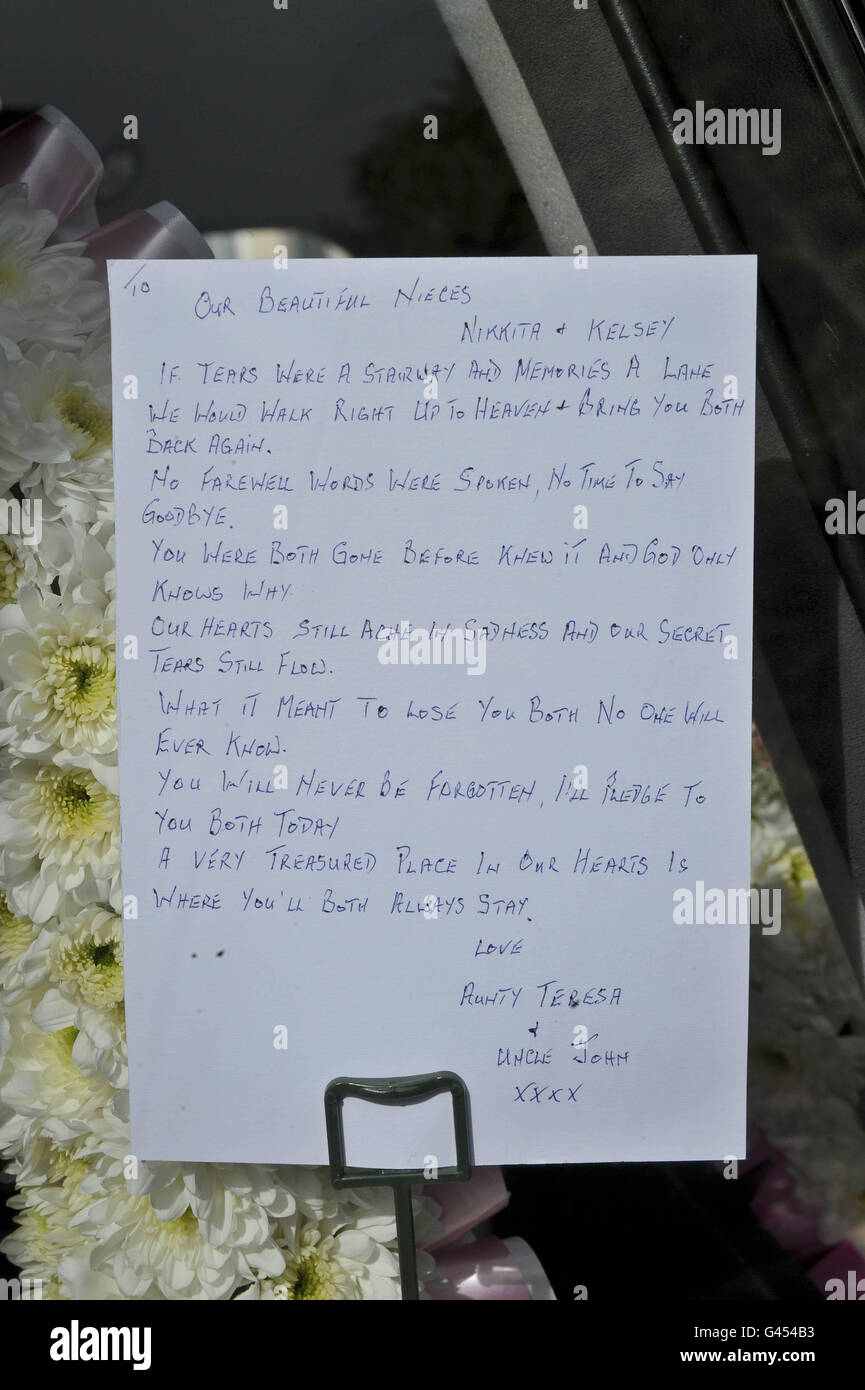 T/O
OUR BEAUTIFUL NIECES
NIKKITA & KELSEY
IF TEARS WERE A STAIRWAY AND MEMORIES A LANE
WE WOULD WALK RIGHT UP TO HEAVEN & BRING YOU BOTH
BACK AGAIN.
NO FAREWELL WORDS WERE SPOKEN, NO TIME TO SAY
GOODBYE.
YOU WERE BOTH GONE BEFORE KNEW IT AND GOD ONLY
KNOWS WHY
OUR HEARTS STILL ACHE IN SADNESS AND OUR SECRET
TEARS STILL FLOW.
WHAT IT MEANT TO LOSE YOU BOTH NO ONE WILL
EVER KNOW.
YOU WILL NEVER BE FORGOTTEN, I'LL PLEDGE TO
YOU BOTH TODAY
A VERY TREASURED PLACE IN OUR HEARTS IS
WHERE YOU'LL BOTH ALWAYS STAY.
LOVE
AUNTY TERESA
&
UNCLE JOHN
XXXX
alamy
alamy
alamy
alamy
alamy
Image ID: G454B3
www.alamy.com